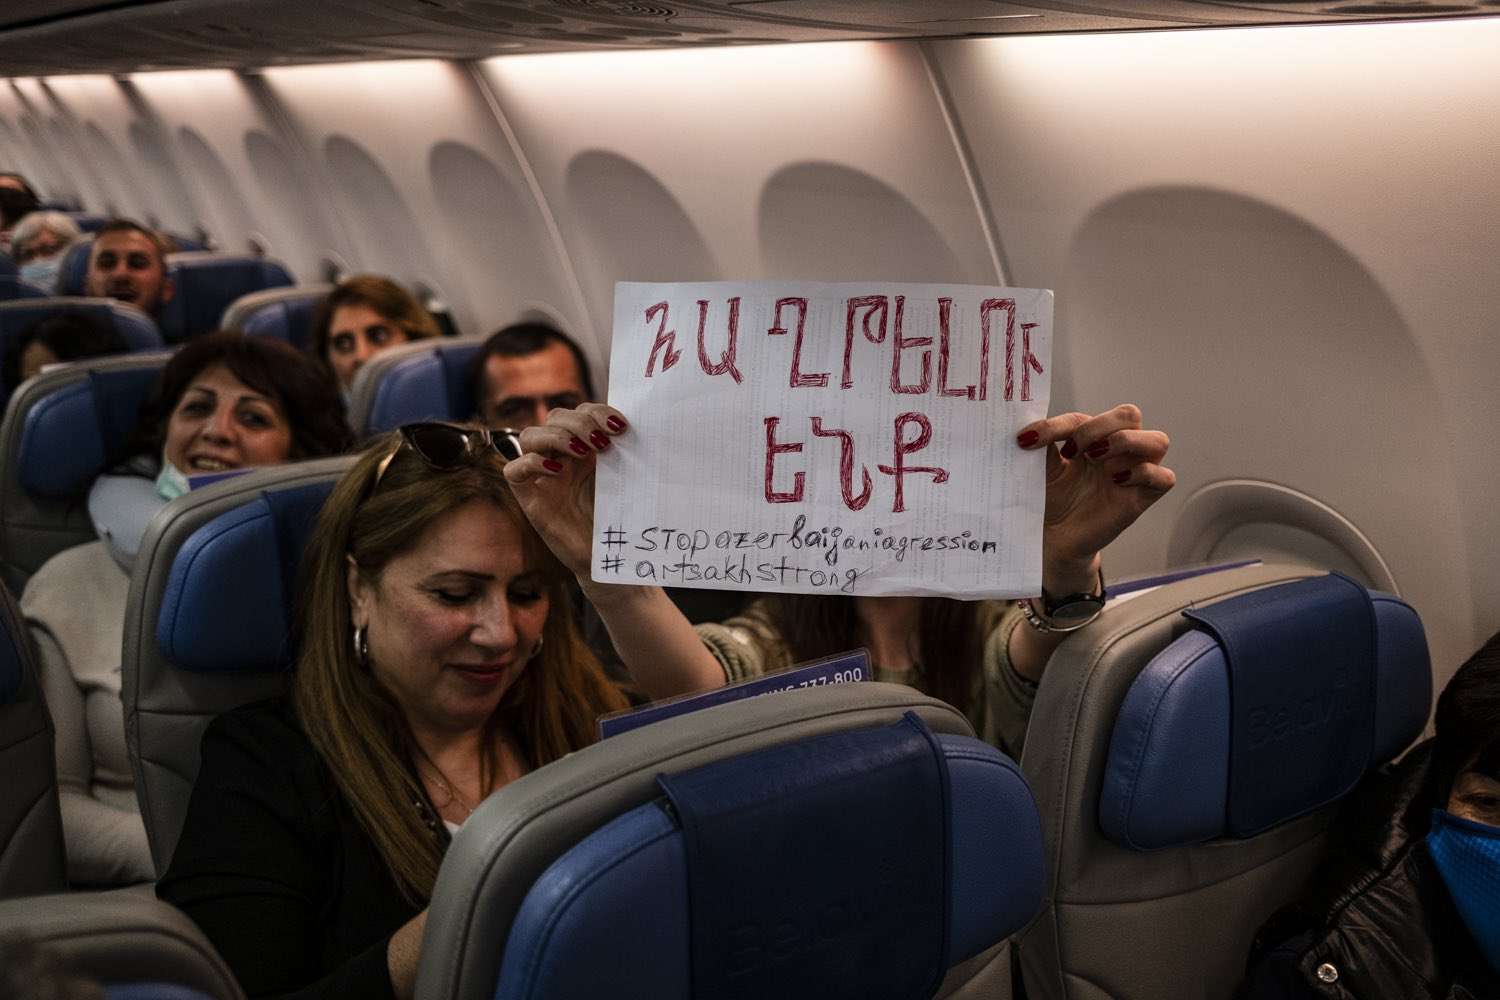 ՀԱՂԹԵԼՈՒ
ԵՆՔ
# STOPazerbaijaniagression
# artsakhstrong
737-800
Belavia
Belavia